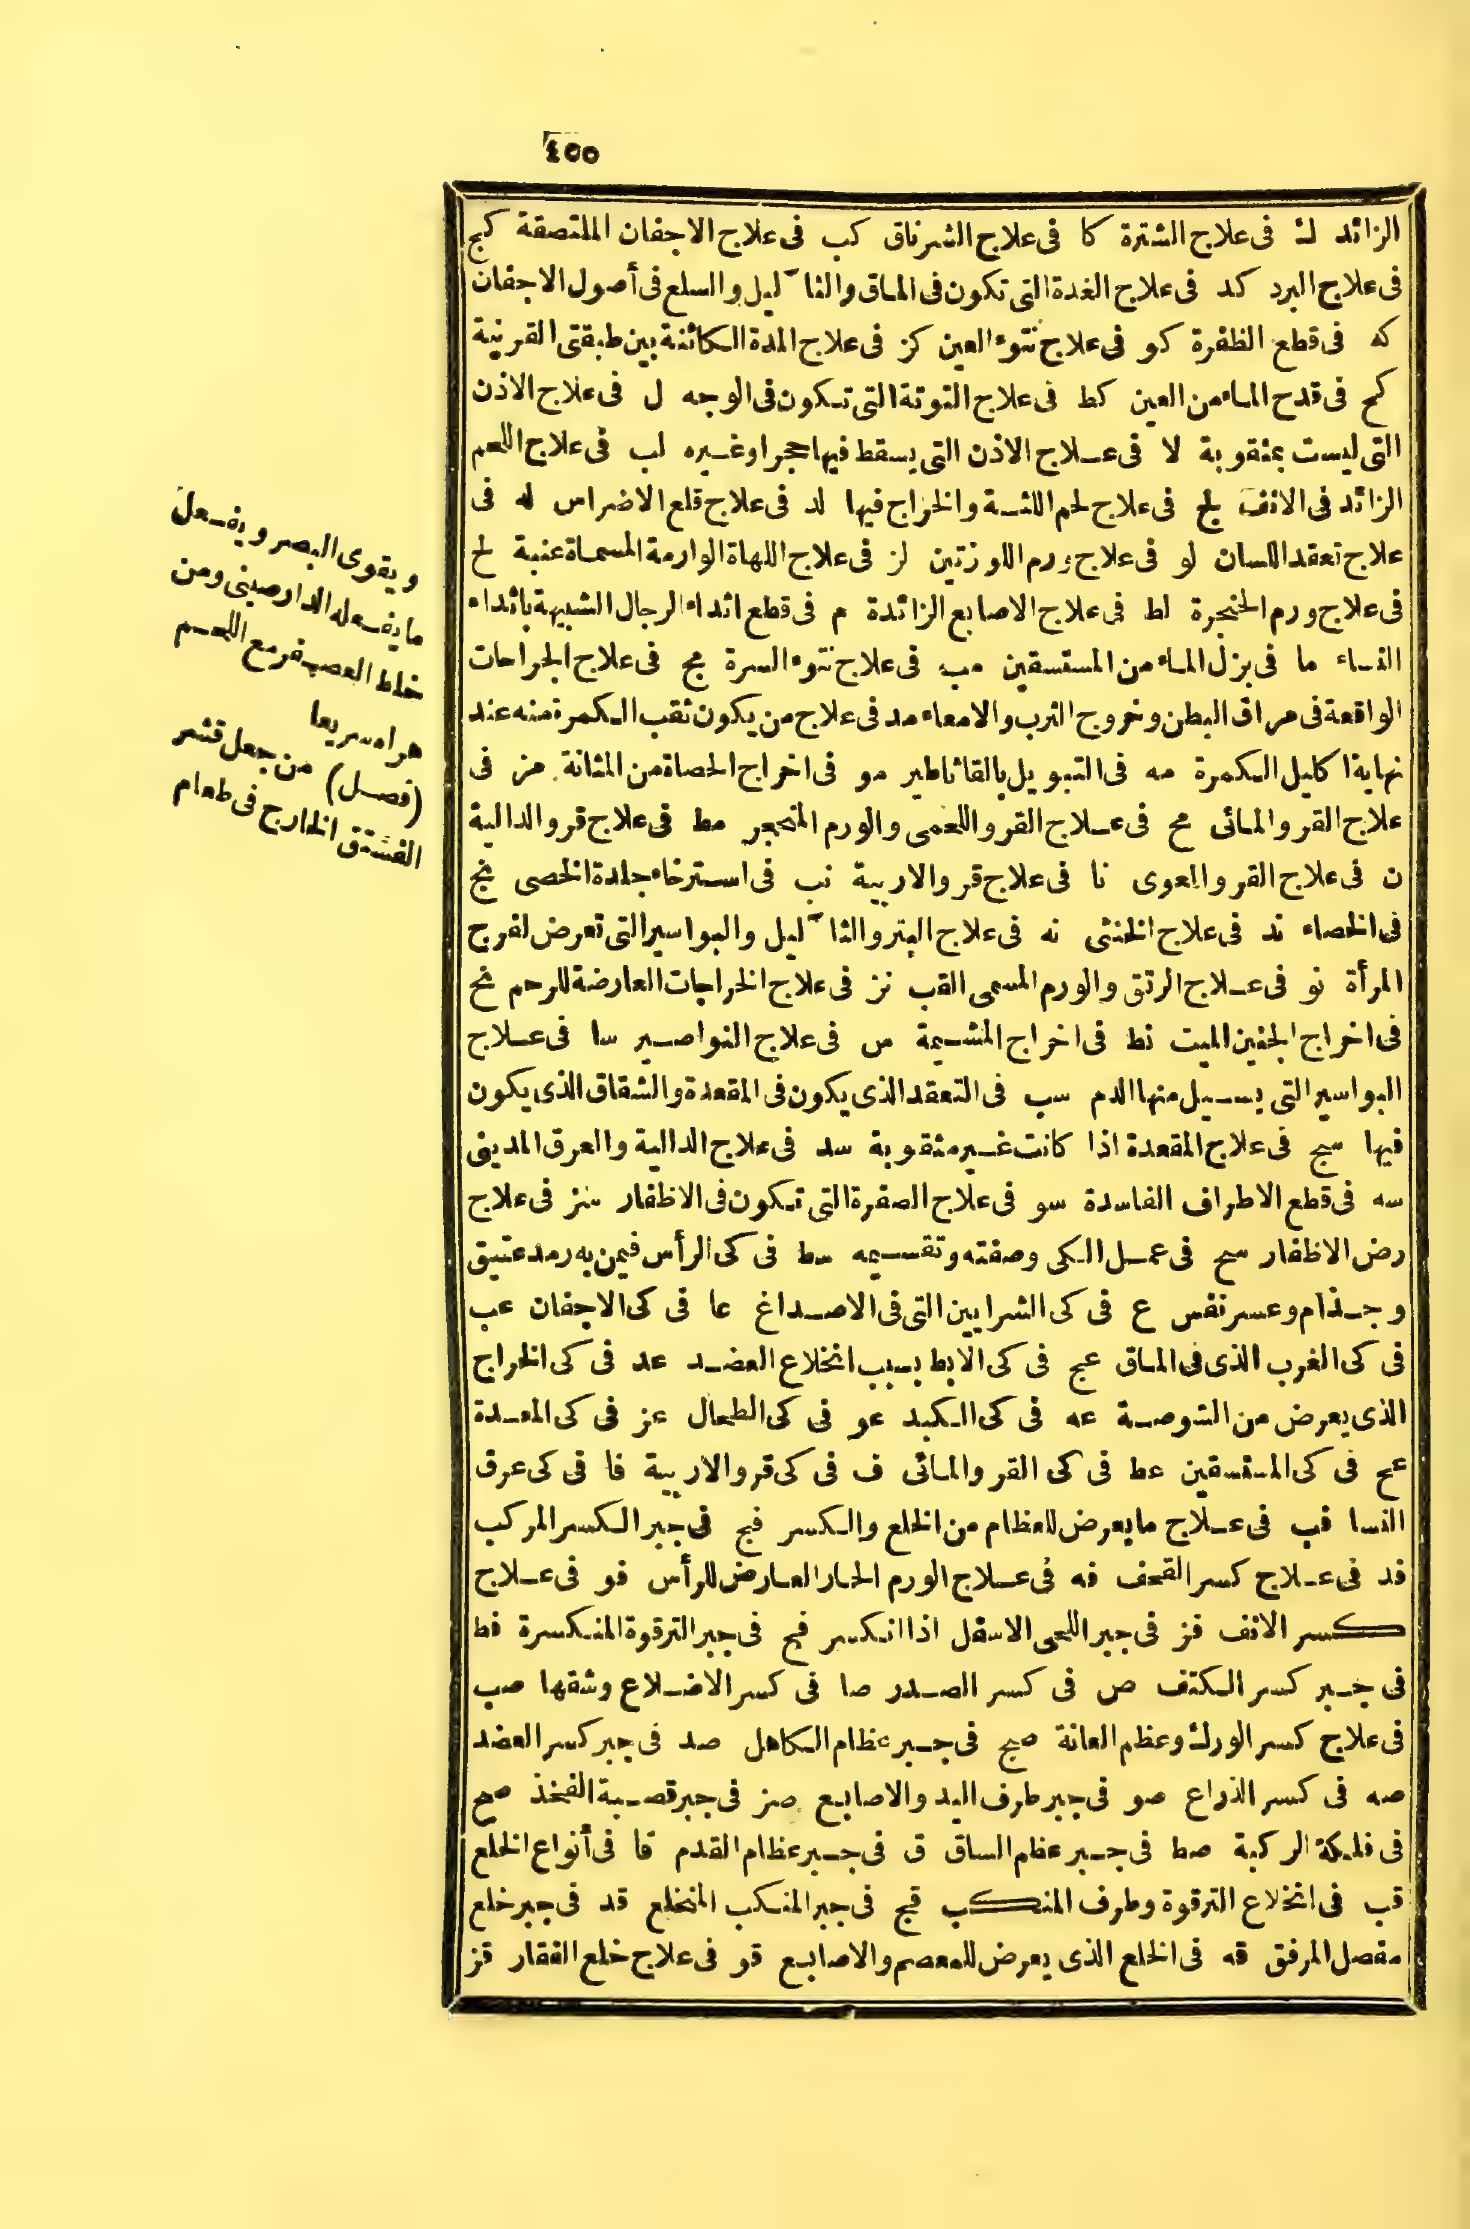 ٤٥٥
الزائد ك فى علاج الشترة كا فى علاج الشرناق كب فى علاج الاجفان الملتصقة كج
فى علاج البرد كد فى علاج الغدة التى تكون فى الماق والثا ٓليل والسلع فى أصول الاجفان
كه فى قطع الظفرة كو فى علاج نتوء العين كز فى علاج المدة الكائنة بين طبقتى القرنية
كح فى قدح الماء من العين كط فى علاج التوتة التى تكون فى الوجه ل فى علاج الاذن
التى ليست بمثقوبة لا فى علاج الاذن التى يسقط فيها حجر اوغيره لب فى علاج اللحم
الزائد فى الانف لج فى علاج لحم اللثة والخراج فيها لد فى علاج قلع الاضراس له فى
علاج تعقد اللسان لو فى علاج ورم اللوزتين لز فى علاج اللهاة الوارمة المسماة عنبية لح
فى علاج ورم الحنجرة لط فى علاج الاصابع الزائدة م فى قطع اثداء الرجال الشبيهة باثداء
النساء ما فى بزل الماء من المستسقين مب فى علاج نتوء السرة مج فى علاج الجراحات
الواقعة فى مراق البطن وخروج الثرب والامعاء مد فى علاج من يكون ثقب الكمرة منه عند
نهاية اكليل الكمرة مه فى التبويل بالقاثاطير مو فى اخراج الحصاة من المثانة مز فى
علاج القرو المائى مح فى علاج القرو اللحمى والورم المتحجر مط فى علاج قرو الدالية
ن فى علاج القرو المعوى نا فى علاج قرو الاربية نب فى استرخاء جلدة الخصى نج
فى الخصاء ند فى علاج الخنثى نه فى علاج البتر والثا ٓليل والبواسير التى تعرض لفرج
المرأة نو فى علاج الرتق والورم المسمى القب نز فى علاج الخراجات العارضة للرحم نح
فى اخراج الجنين الميت نط فى اخراج المشيمة س فى علاج النواصير سا فى علاج
البواسير التى يسيل منها الدم سب فى التعقد الذى يكون فى المقعدة والشقاق الذى يكون
فيها سج فى علاج المقعدة اذا كانت غير مثقوبة سد فى علاج الدالية والعرق المدينى
سه فى قطع الاطراف الفاسدة سو فى علاج الصفرة التى تكون فى الاظفار سز فى علاج
رض الاظفار سح فى عمل الكى وصفته وتقسيمه سط فى كى الرأس فيمن به رمد عتيق
وجذام وعسر نفس ع فى كى الشرايين التى فى الاصداغ عا فى كى الاجفان عب
فى كى الغرب الذى فى الماق عج فى كى الابط بسبب انخلاع العضد عد فى كى الخراج
الذى يعرض من الشوصة عه فى كى الكبد عو فى كى الطحال عز فى كى المعدة
عح فى كى المستسقين عط فى كى القرو المائى ف فى كى قرو الاربية فا فى كى عرق
النسا فب فى علاج ما يعرض للعظام من الخلع والكسر فج فى جبر الكسر المركب
فد فى علاج كسر القحف فه فى علاج الورم الحار العارض للرأس فو فى علاج
كسر الانف فز فى جبر اللحى الاسفل اذا انكسر فح فى جبر الترقوة المنكسرة فط
فى جبر كسر الكتف ص فى كسر الصدر صا فى كسر الاضلاع وشقها صب
فى علاج كسر الورك وعظم العانة صج فى جبر عظام الكاهل صد فى جبر كسر العضد
صه فى كسر الذراع صو فى جبر طرف اليد والاصابع صز فى جبر قصبة الفخذ صح
فى فلكة الركبة صط فى جبر عظم الساق ق فى جبر عظام القدم قا فى أنواع الخلع
قب فى انخلاع الترقوة وطرف المنكب قج فى جبر المنكب المنخلع قد فى جبر خلع
مفصل المرفق قه فى الخلع الذى يعرض للمعصم والاصابع قو فى علاج خلع الفقار قز
ويقوى البصر ويفعل
ما يفعله الدارصينى ومن
خلط العصفر مع اللحم
هراه سريعا
(فصل) من جعل قشر
الفستق الخارج فى طعام